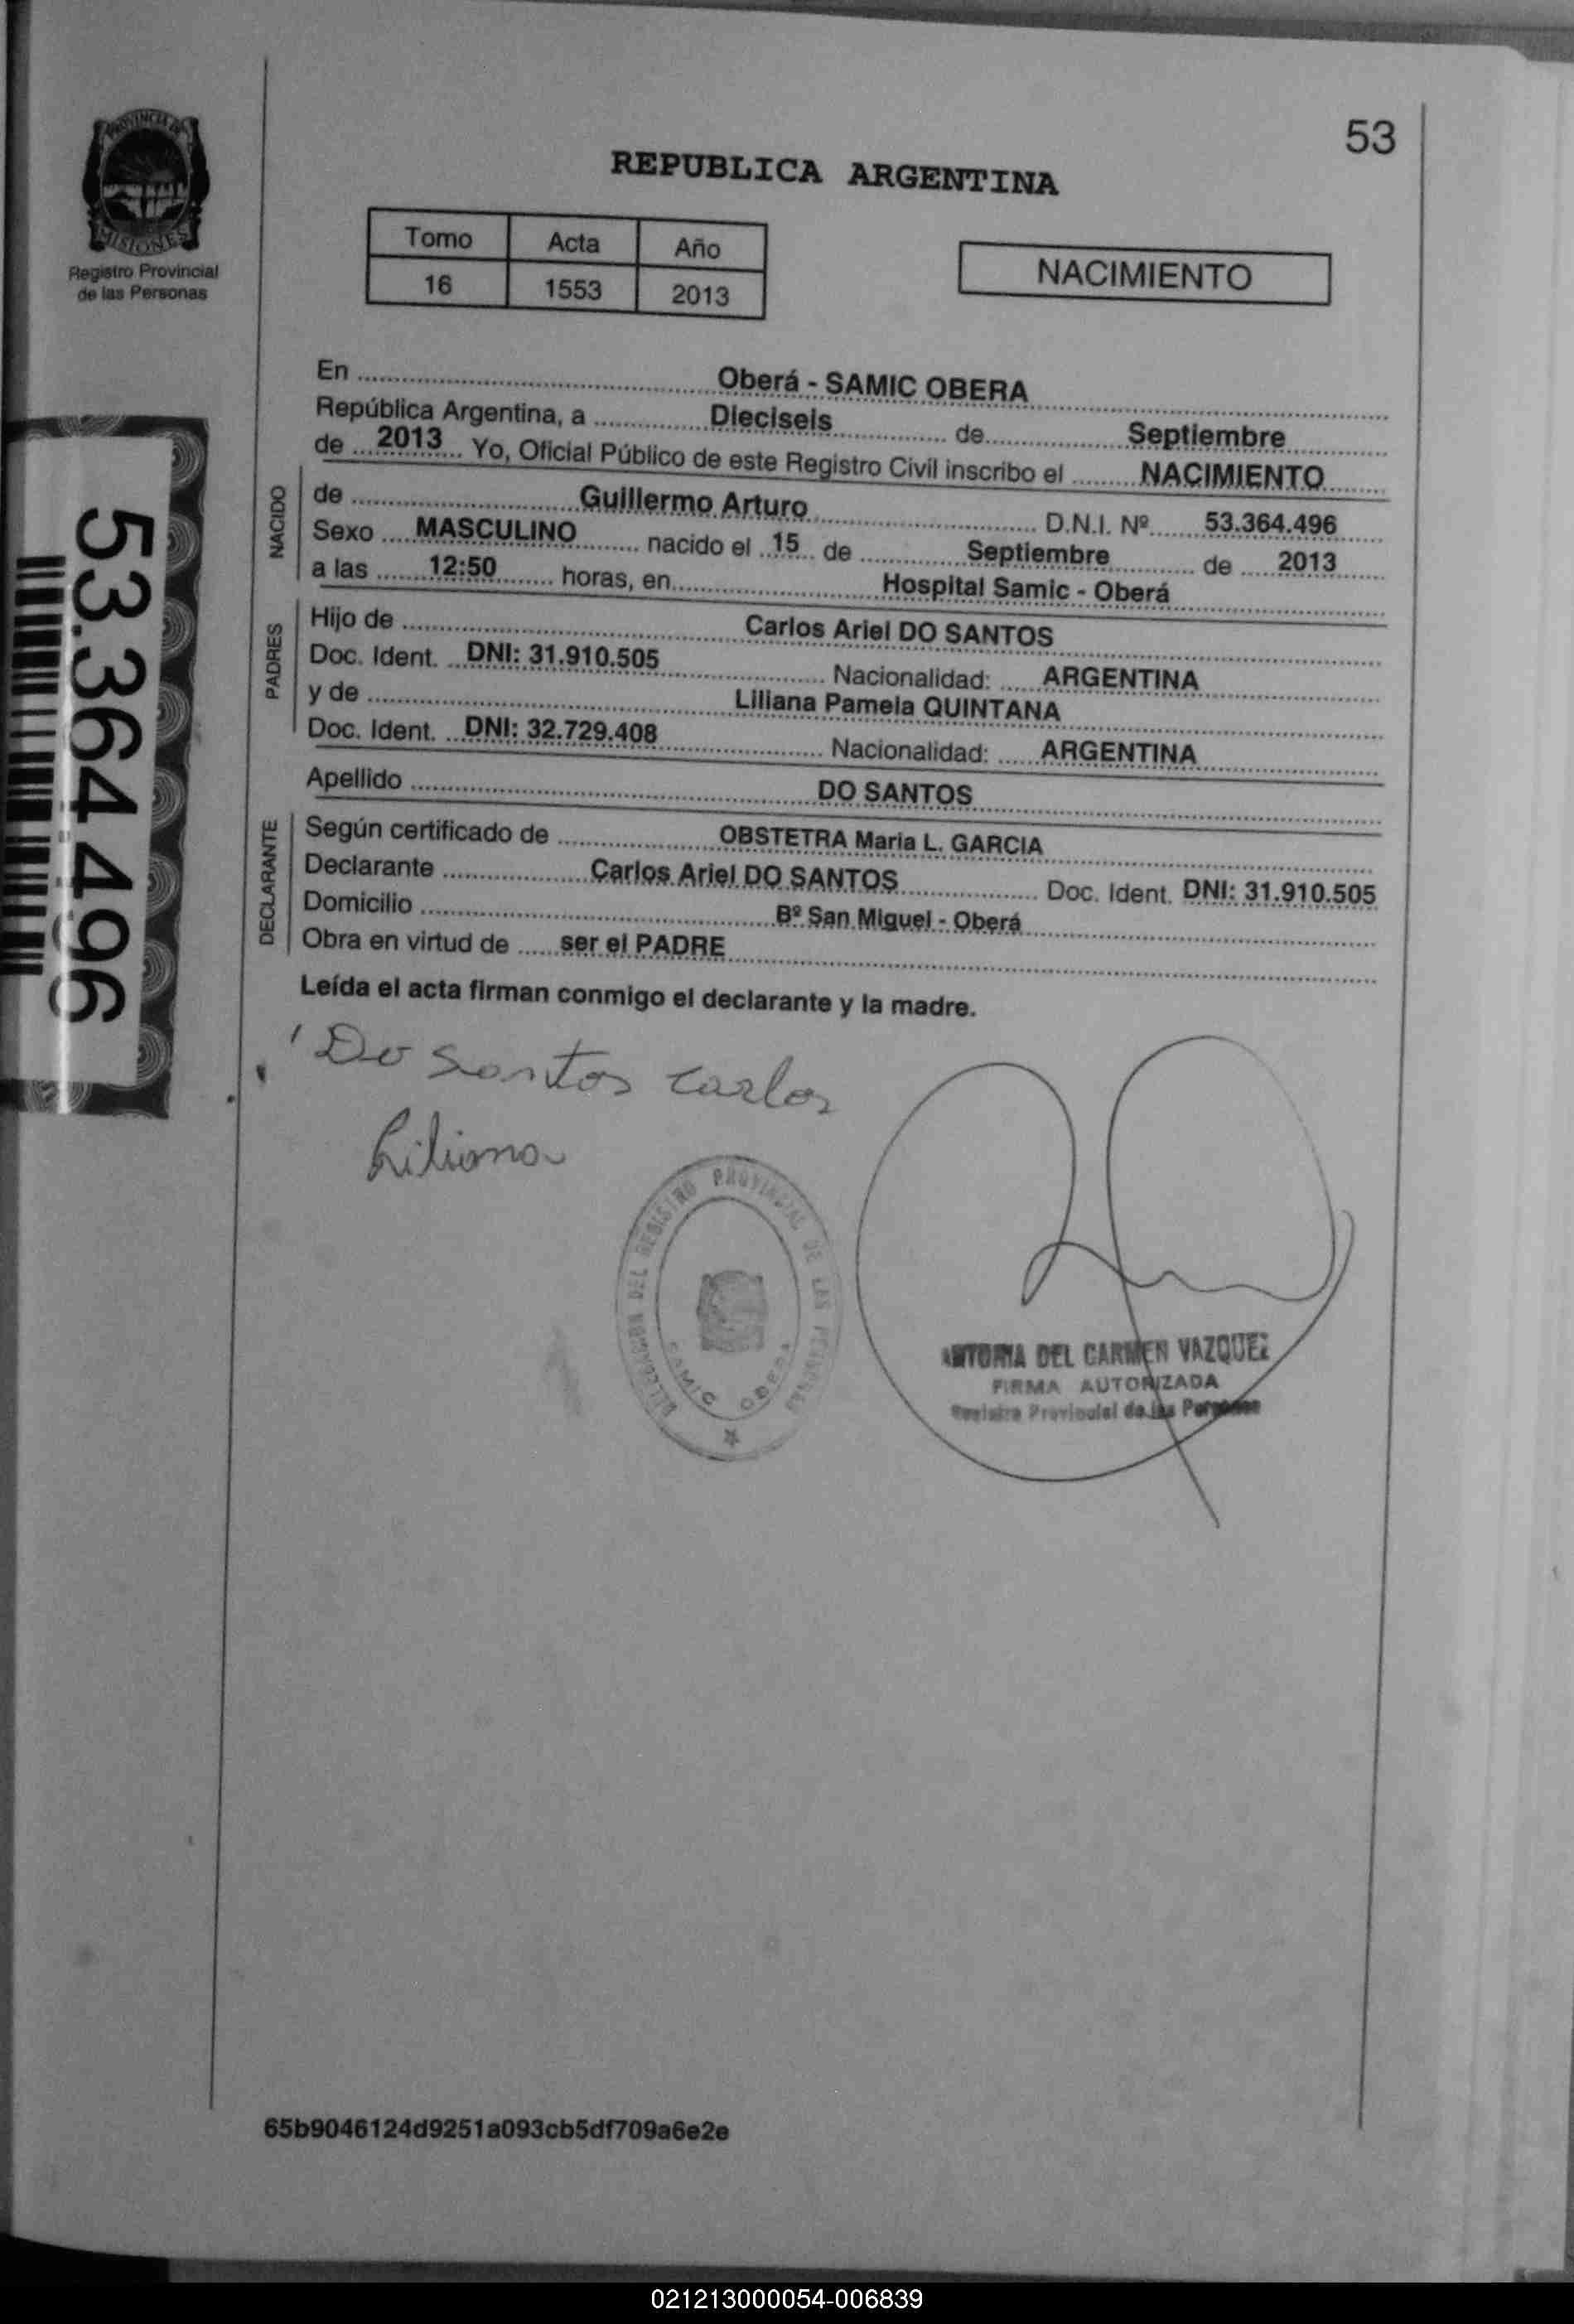 53
PROVINCIA DE
MISIONES
Registro Provincial
de las Personas
REPUBLICA ARGENTINA
Tomo Acta Año
16 1553 2013
NACIMIENTO
En Oberá - SAMIC OBERA
República Argentina, a Dieciseis de Septiembre
de 2013 Yo, Oficial Público de este Registro Civil inscribo el NACIMIENTO
NACIDO
de Guillermo Arturo D.N.I. Nº 53.364.496
Sexo MASCULINO nacido el 15 de Septiembre de 2013
a las 12:50 horas, en Hospital Samic - Oberá
PADRES
Hijo de Carlos Ariel DO SANTOS
Doc. Ident. DNI: 31.910.505 Nacionalidad: ARGENTINA
y de Liliana Pamela QUINTANA
Doc. Ident. DNI: 32.729.408 Nacionalidad: ARGENTINA
Apellido DO SANTOS
DECLARANTE
Según certificado de OBSTETRA Maria L. GARCIA
Declarante Carlos Ariel DO SANTOS Doc. Ident. DNI: 31.910.505
Domicilio Bº San Miguel - Oberá
Obra en virtud de ser el PADRE
Leída el acta firman conmigo el declarante y la madre.
53.364.496
Do Santos Carlos
Liliana
DELEGADA DEL REGISTRO PROVINCIAL DE LAS PERSONAS
SAMIC OBERA
ANTONIA DEL CARMEN VAZQUEZ
FIRMA AUTORIZADA
Registro Provincial de las Personas
65b9046124d9251a093cb5df709a6e2e
021213000054-006839